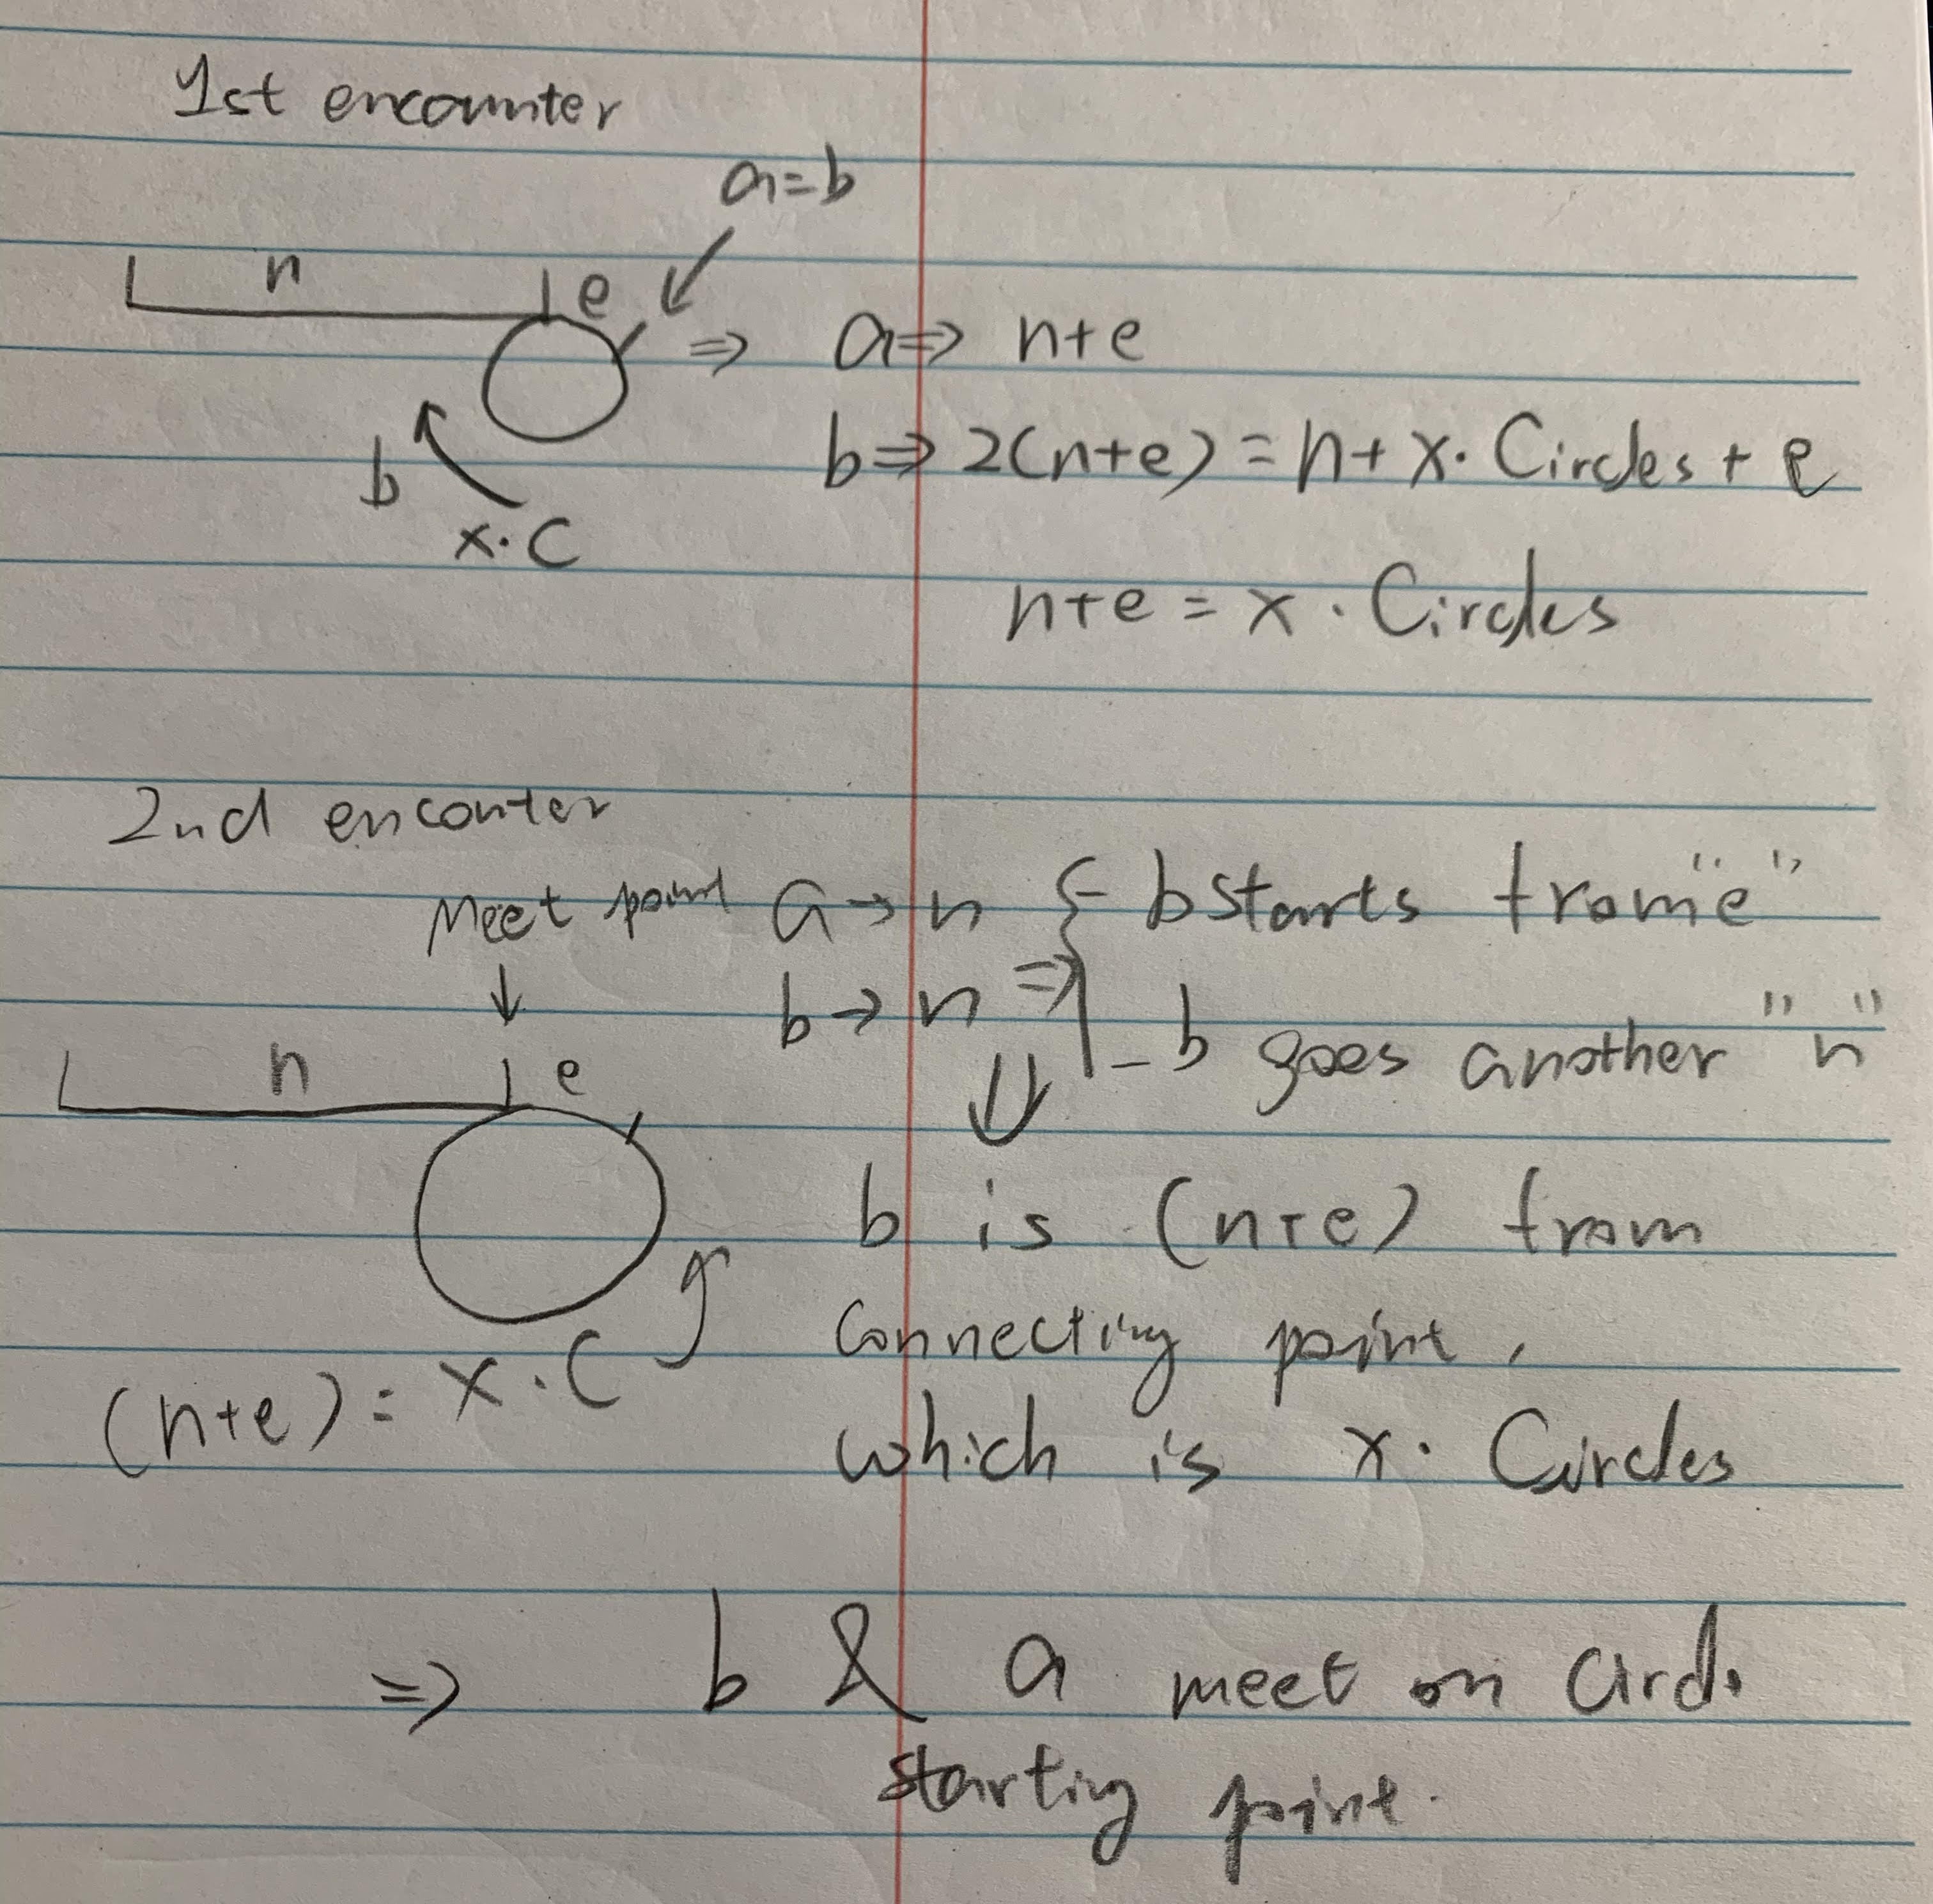 1st encounter
a=b
n e
⇒ a⇒ n+e
b⇒ 2(n+e) = n + x. Circles + e
b
x.C
n+e = x . Circles
2nd enconter
Meet point a→n { - b starts from "e"
b→n ⇒ - b goes another "n"
n e
⇓
b is (n+e) from
Connecting point,
(n+e) = x . C
which is x. Circles
⇒ b & a meet on circle
starting point.